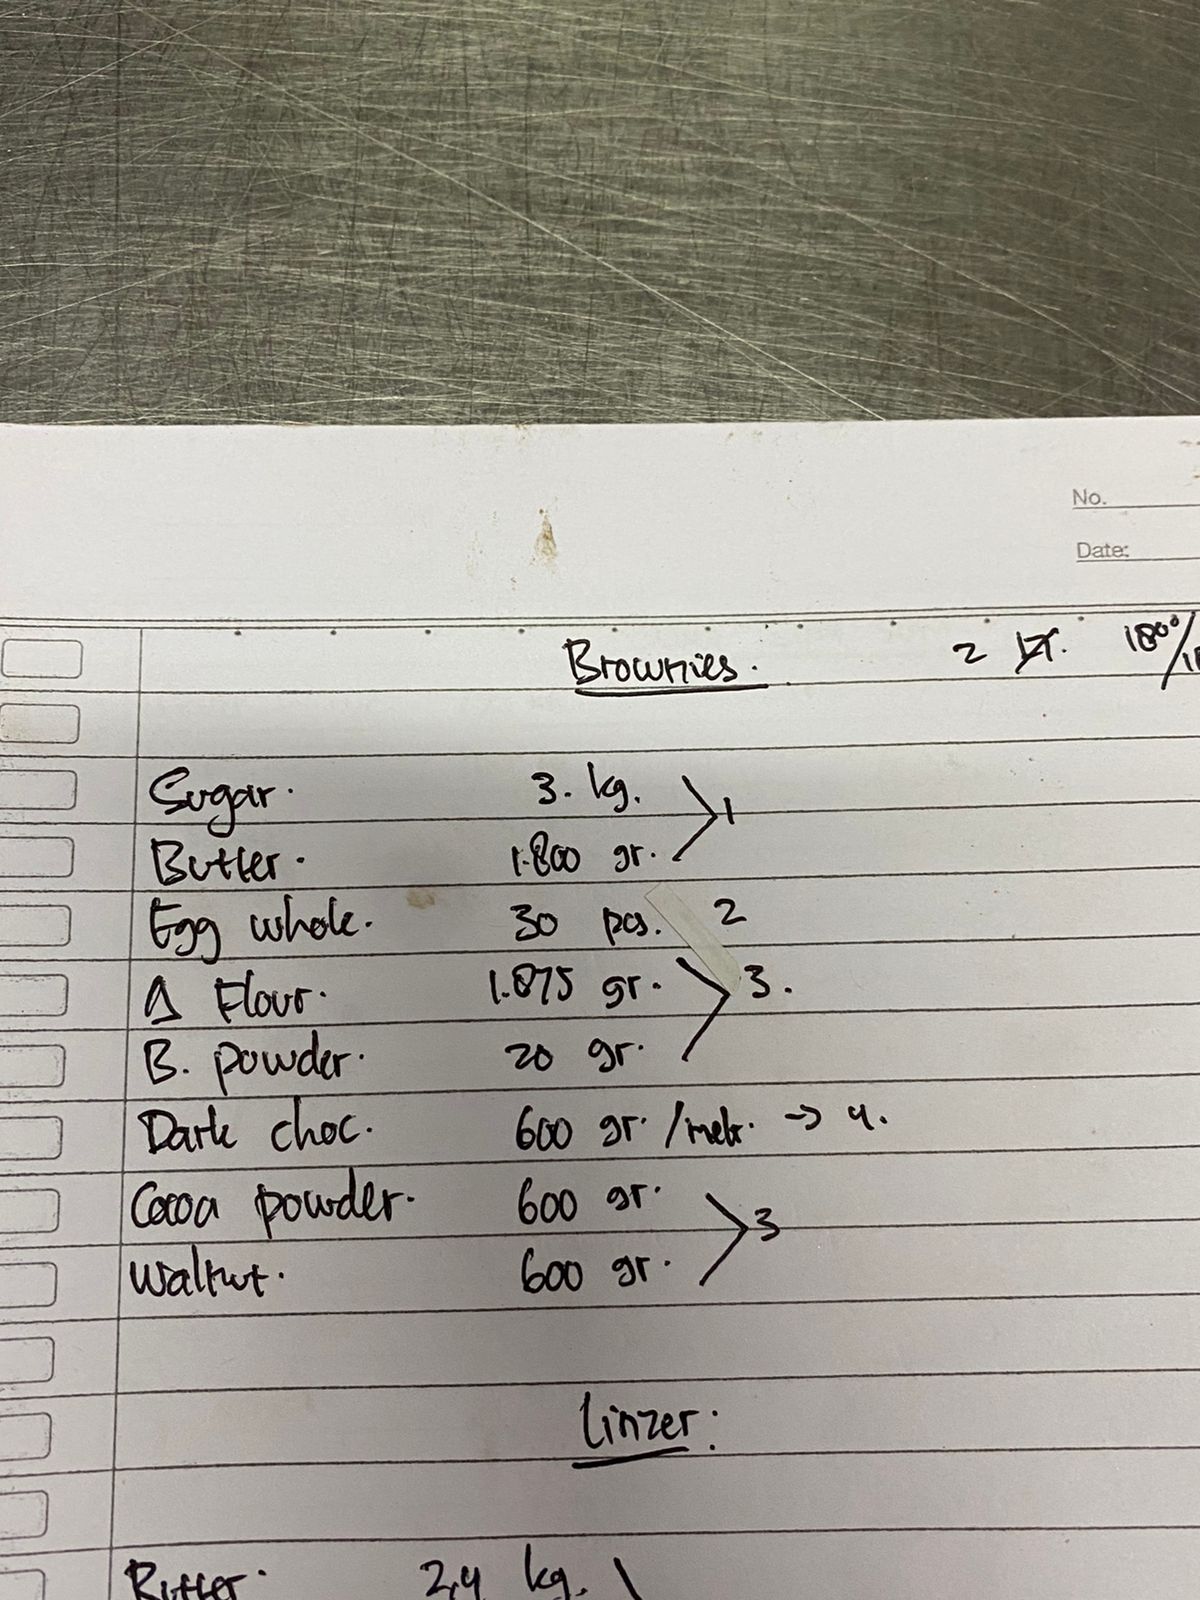 No.
Date:
Brownies. 2 180°/
Sugar. 3. kg. > 1
Butter. 1.800 gr.
Egg whole. 30 pcs. 2
Δ Flour. 1.875 gr. > 3.
B. powder. 20 gr.
Dark choc. 600 gr. /melt. → 4.
Cocoa powder. 600 gr. > 3
Walnut. 600 gr.
Linzer:
Butter. 2,4 kg.